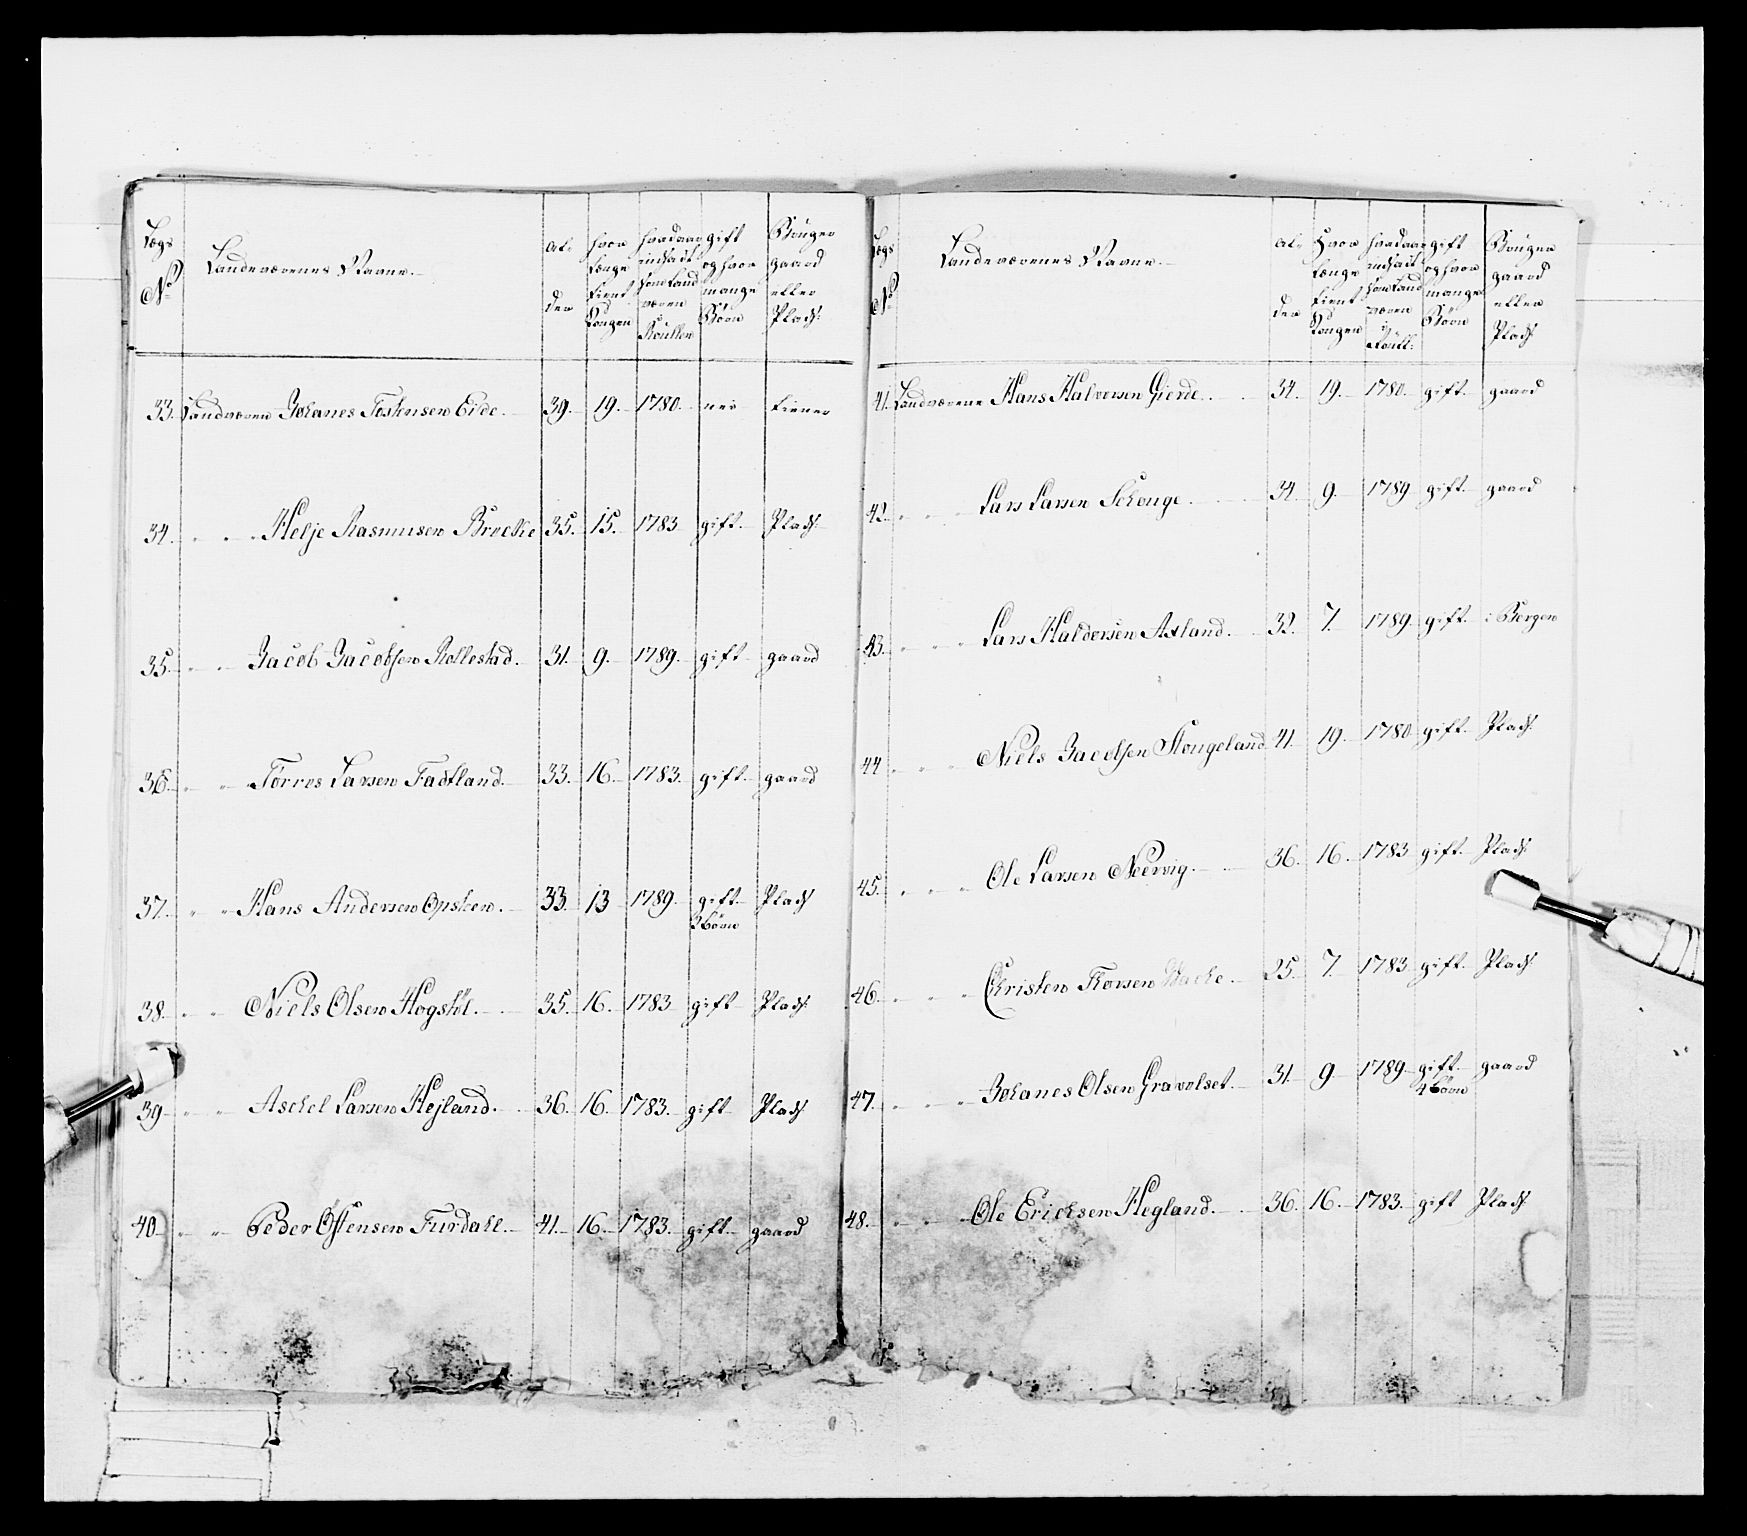 Lægs No | Landeværenes Navne. | Al- der | Hvor Længe tient Kongen | hvad aar indsadt som Land væren i Roullen | gift og hvor mange Børn | Bruger gaard eller Plads
33. Landværen Johanes Tostensen Eide. 39. 19. 1780. nei tiener
34. " " Helje Rasmusen Broeke 35. 15. 1783 gift. Plads
35. " " Jacob Jacobsen Rollestad. 31. 9. 1789. gift gaard
36. " " Torres Larsen Fadtland. 33. 16. 1783. gift. gaard
37. " " Hans Andersen Opsken. 33. 13 1789. gift. Plads
3 Børn
38. " " Niels Olsen Hogstøl. 35. 16. 1783 gift Plads
39 " " Aschel Larsen Hejland. 36. 16. 1783. gift Plads
40 " " Peder Østensen Furdahl. 41. 16. 1783. gift. gaard
Lægs No | Landeværenes Navne. | Al- der | Hvor Længe tient Kongen | hvad aar indsadt som Land væren i Roull: | gift og hvor mange Børn | Bruger gaard eller Plads
41. Landværene Hans Halvorsen Gierde. 34. 19. 1780. gift. gaard
42. " " Lars Larsen Schonge. 34 9. 1789 gift. gaard
43. " " " Lars Haldorsen Axland. 32. 7. 1789. gift. i Bergen
44 " " " Niels Jacobsen Stongeland 41. 19. 1780 gift. Plads
45. " " " Ole Larsen Neervig. 36. 16. 1783 gift. Plads
46. " " " Christen Thorsen 25. 7. 1783 gift. Plads
47. " " " Johanes Olsen Gravolset. 31. 9 1789 gift. gaard
4 Børn
48. " " " Ole Ericksen Hegland. 36. 16. 1783. gift Plads